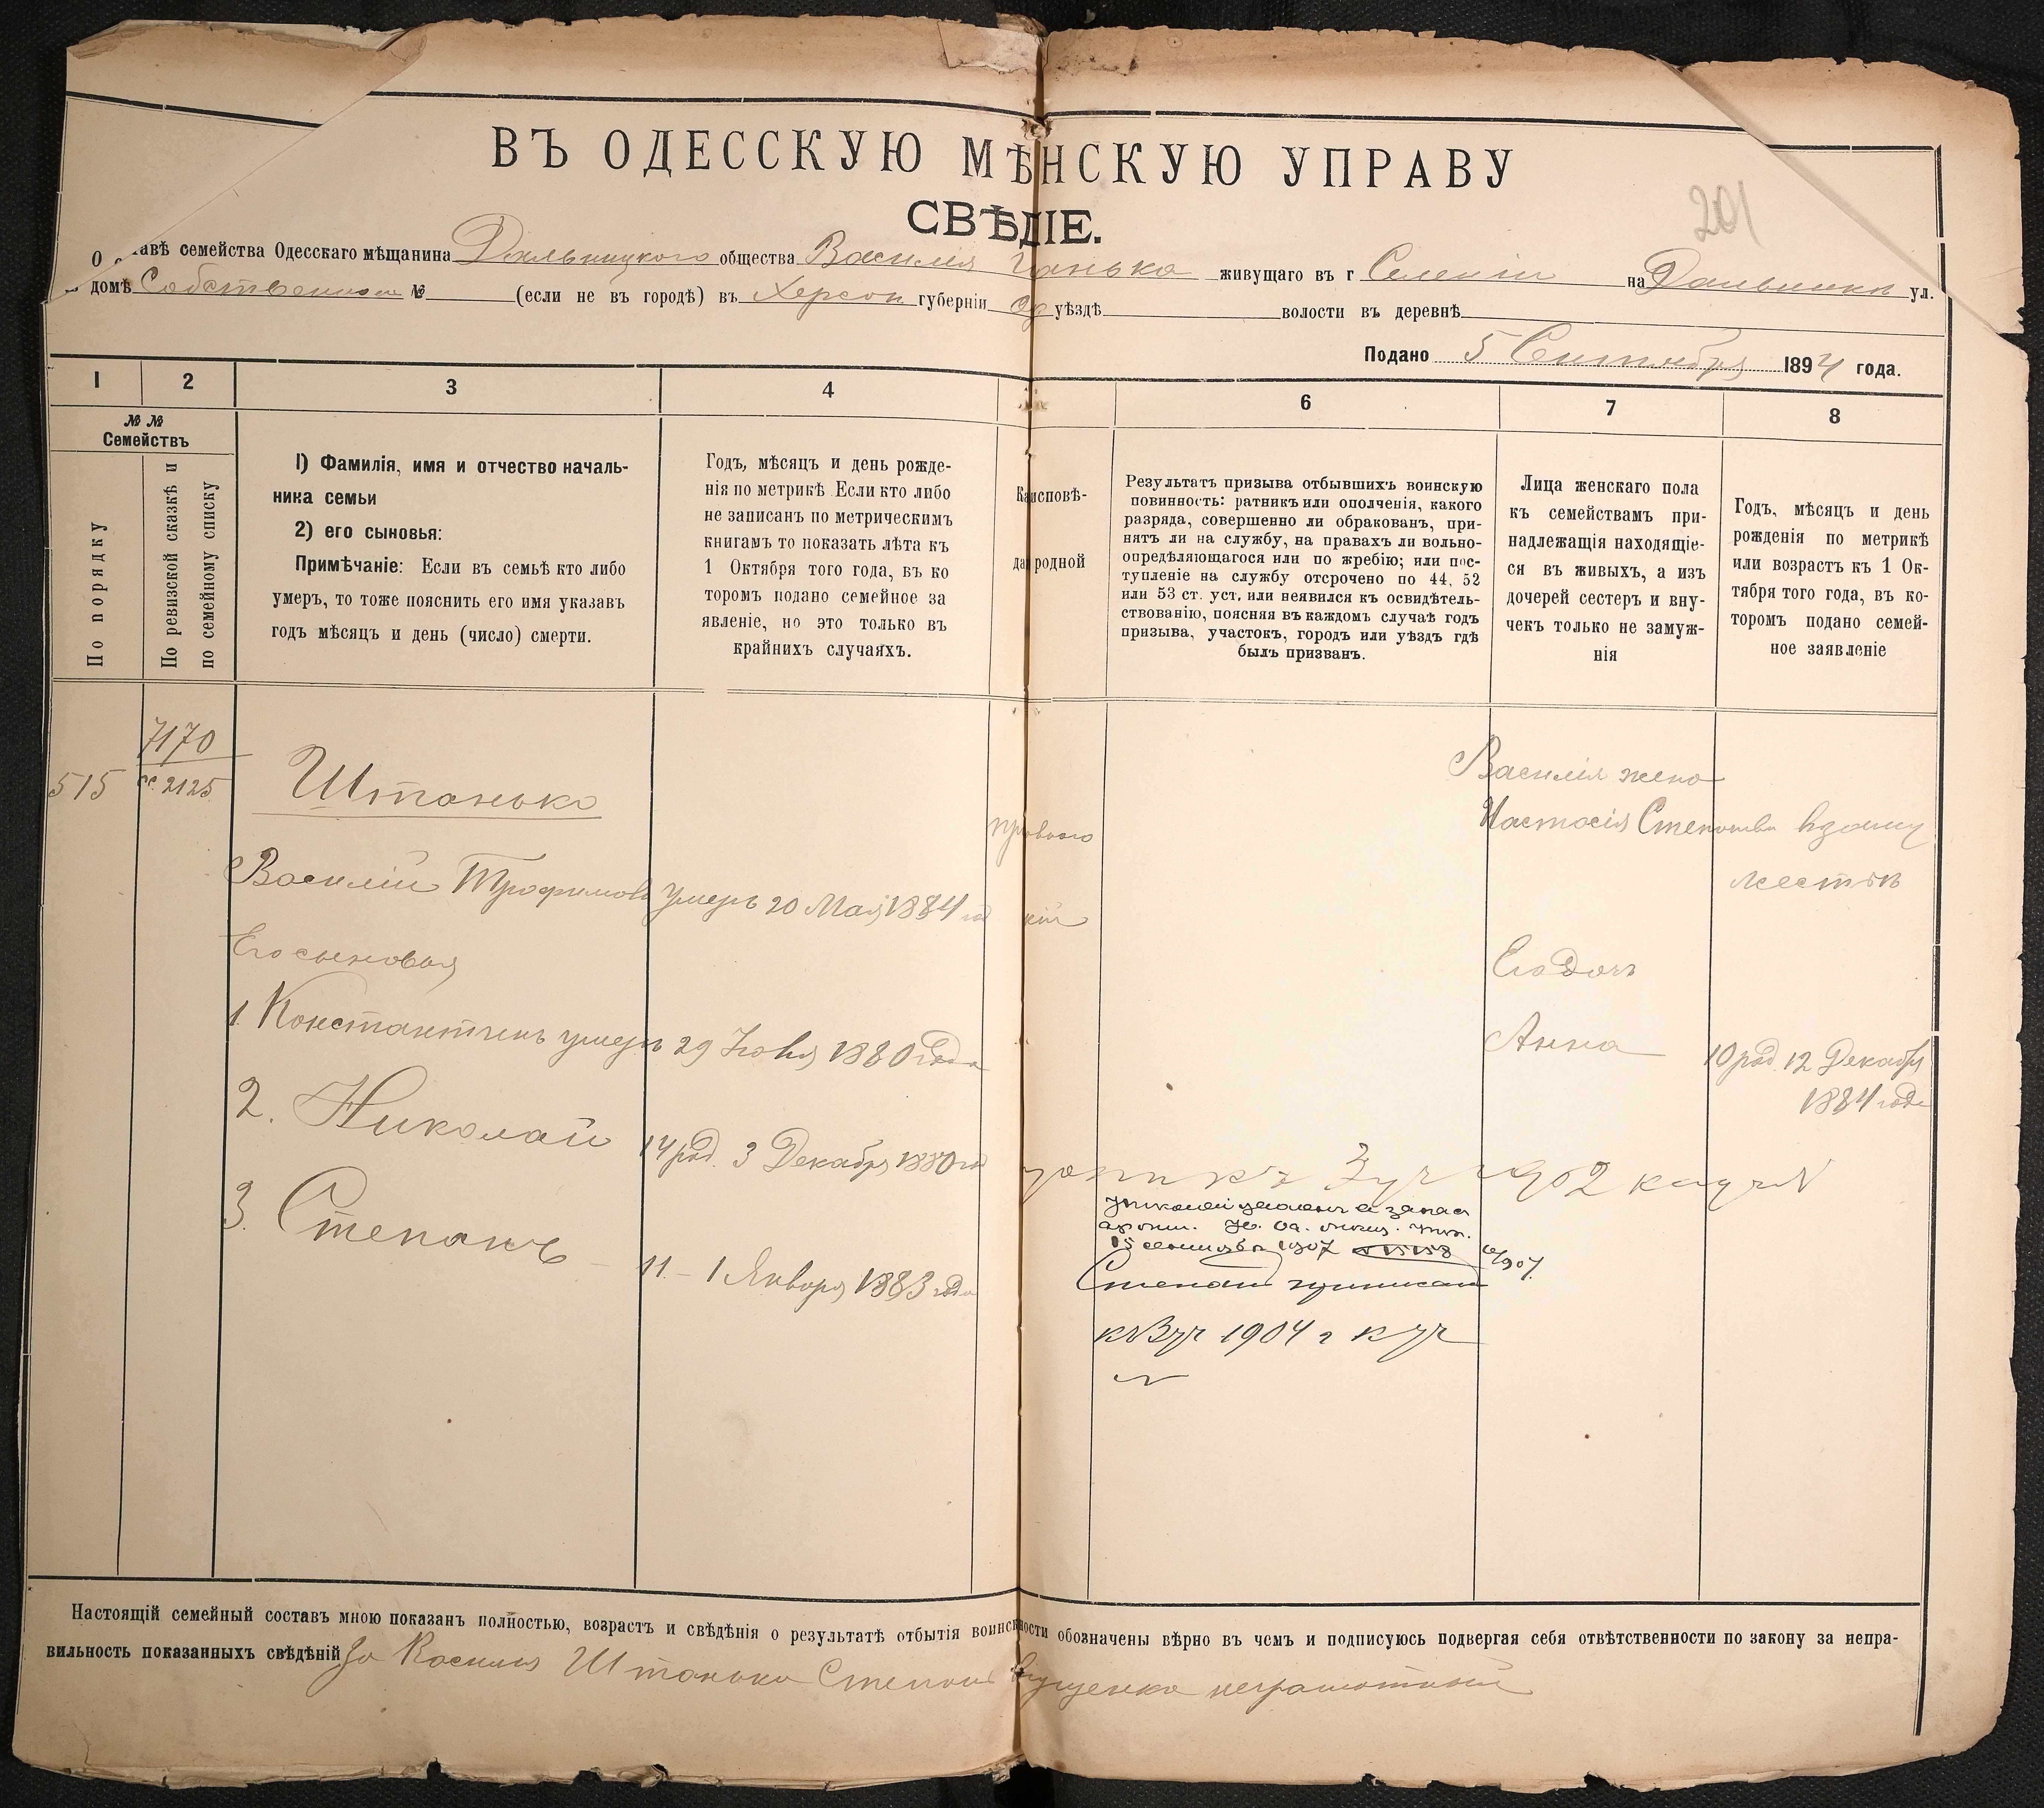 ВЪ ОДЕССКУЮ МѢНСКУЮ УПРАВУ
201
СВѢДІЕ.
О авѣ семейства Одесскаго мѣщанина Дальницкого общества Василія анько живущаго въ г Селеніи на Дальникъ ул.
домѣ Собственном № (если не въ городѣ) въ Херсон губерніи Од уѣздѣ волости въ деревнѣ
Подано 5 Сентября 1894 года.
1 2 3 4 6 7 8
№ №
Семействъ
По порядку
По ревизской сказкѣ и
по семейному списку
1) Фамилія, имя и отчество началь-
ника семьи
2) его сыновья:
Примѣчаніе: Если въ семьѣ кто либо
умеръ, то тоже пояснить его имя указавъ
годъ мѣсяцъ и день (число) смерти.
Годъ, мѣсяцъ и день рожде-
нія по метрикѣ Если кто либо
не записанъ по метрическимъ
книгамъ то показать лѣта къ
1 Октября того года, въ ко
торомъ подано семейное за
явленіе, но это только въ
крайнихъ случаяхъ.
Ка исповѣ-
да родной
Результатъ призыва отбывшихъ воинскую
повинность: ратникъ или ополченія, какого
разряда, совершенно ли обракованъ, при-
нятъ ли на службу, на правахъ ли вольно-
опредѣляющагося или по жребію; или пос-
тупленіе на службу отсрочено по 44, 52
или 53 ст. уст, или неявился къ освидѣтель-
ствованію, поясняя въ каждомъ случаѣ годъ
призыва, участокъ, городъ или уѣздъ гдѣ
былъ призванъ.
Лица женскаго пола
къ семействамъ при-
надлежащія находящіе-
ся въ живыхъ, а изъ
дочерей сестеръ и вну-
чекъ только не замуж-
нія
Годъ, мѣсяцъ и день
рожденія по метрикѣ
или возрастъ къ 1 Ок-
тября того года, въ ко-
торомъ подано семей-
ное заявленіе
7170
515 сс. 2125
Штанько
Василія жена
Настасія Степанова
Василій Трофимовъ умеръ 20 Мая 1884 год
Его сыновья
Его Доч
1. Константинъ умеръ 29 Іюля 1880 года
Анна 10 род. 12 Декабря
1884 года
2. Николай 14 род. 3 Декабря 1880 год
3 уч 1902
3. Степанъ – 11 – 1 Января 1883 года
запас
15 1907
Степан приписан
къ 3 уч 1904 г
Настоящій семейный составъ мною показанъ полностью, возрастъ и свѣдѣнія о результатѣ отбытія воинск ности обозначены вѣрно въ чемъ и подписуюсь подвергая себя отвѣтственности по закону за непра-
вильность показанныхъ свѣдѣній За Василія Штанько Степан неграмотный